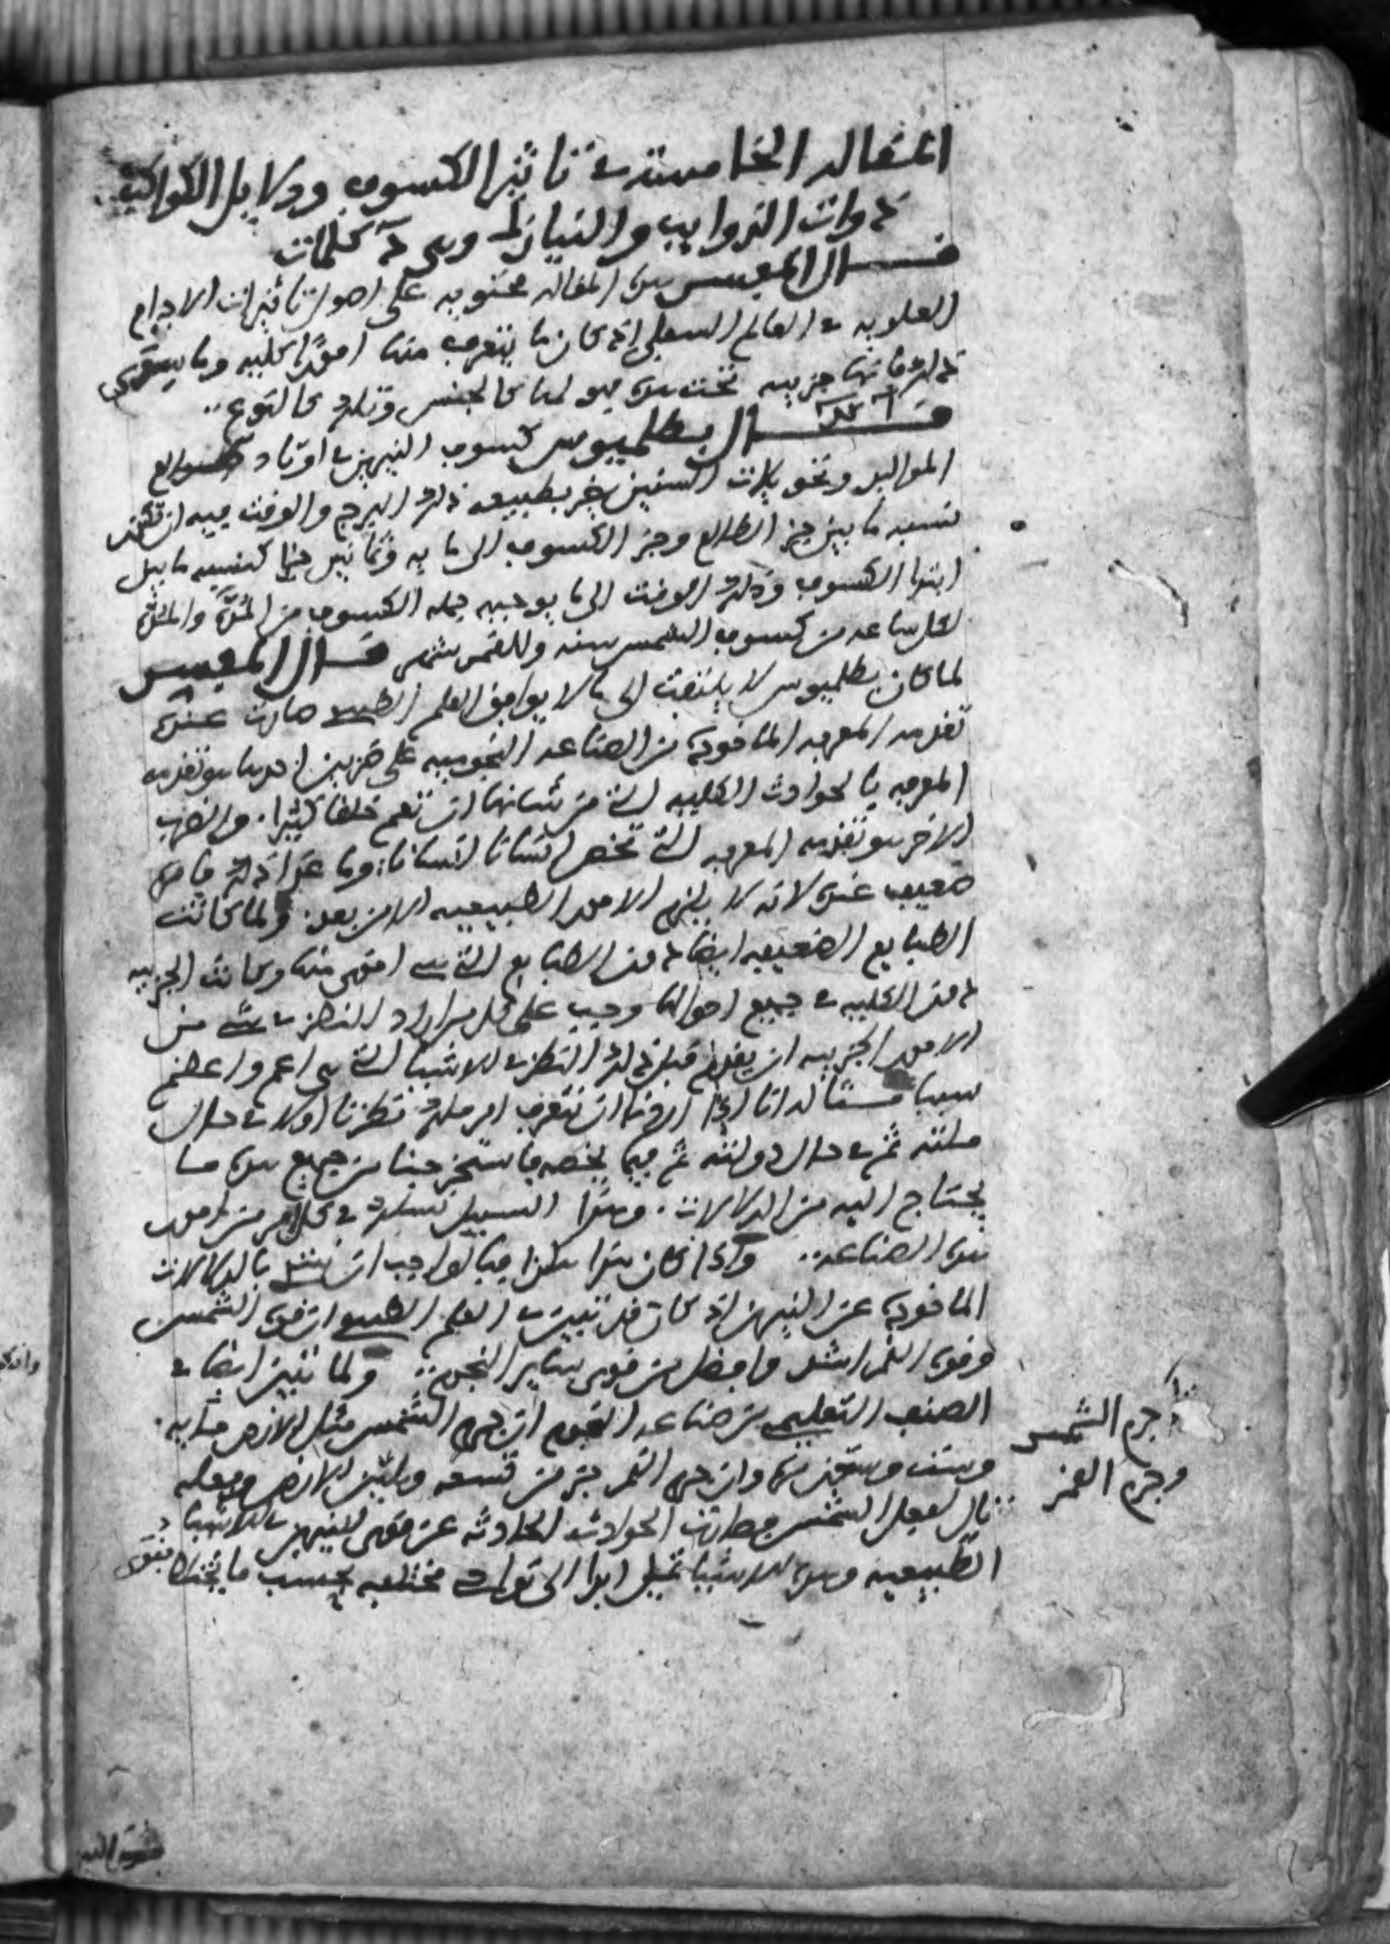 المقاله الخامسة في تاثير الكسوف ودلايل الكواكب
ذوات الذوايب والنيازك وهي كلمات
قال المفسر هذه المقاله محتويه على اصول تاثيرات الاجرام
العلويه في العالم السفلي اذ كان ما يتعرف منها امورا كليه وما سوى
ذلك فانها جزييه تحت هذه فهو لها كالجنس وتلك كالنوع
قال بطلميوس كسوف النيرين في اوتاد طوالع
المواليد وتحويلات السنين يضر بطبيعه ذلك البرج والوقت فيه ان تاخذ
نسبه ما بين جزء الطالع وجزء الكسوف الى مايه وثمانين جزا كنسبه ما بين
ابتدا الكسوف وذلك الوقت الى ما يوجبه جمله الكسوف من المده والمده
لكل ساعه من كسوف الشمس سنه وللقمر شهر قال المفسر
لما كان بطلميوس لا يلتفت الى ما لا يوافق العلم الطبيعي صارت عنده
تقدمه المعرفه الماخوذه من الصناعه النجوميه على ضربين احدهما هو تقدمه
المعرفه بالحوادث الكليه التي من شانها ان تعم خلقا كثيرا والضرب
الاخر هو تقدمه المعرفه التي تخص انسانا انسانا وما عدا ذلك فامره
ضعيف عنده لانه لا يلزم الامور الطبيعيه الا من بعد ولما كانت
الطبايع الضعيفه ايضا دون الطبايع التي هي اقوى منها وكانت الجزييه
دون الكليه في جميع احوالها وجب على كل من اراد النظر في شي من
الامور الجزييه ان يقدم قبل ذلك النظر في الاشيا التي هي اعم واعظم
سببا مثاله انا اذا اردنا ان نتعرف امر ملك نظرنا اولا في حال
ملته ثم في حال دولته ثم فيما يخصه فاستخرجنا من جميع هذه ما
يحتاج اليه من الدلالات وهذا السبيل نسلك في كل امر من امور
هذه الصناعه واذا كان هذا هكذا فبالواجب ان بالدلالات
الماخوذه عن النيرين اذ كان قد تبين في العلم الطبيعي ان قوى الشمس
وقوى القمر اشد وافضل من قوى ساير النجوم ولما تبين ايضا في
الصنف التعليمي من صناعه النجوم ان جرم الشمس مثل الارض مايه
وست وستين مره وان جرم القمر جزء من تسعه وثلثين من الارض وفعله
تال لفعل الشمس صارت الحوادث الحادثه عن قوى النيرين في الاشيا
الطبيعيه وهذه الاشيا تميل ابدا الى مختلفه بحسب ما
جرم الشمس
وجرم القمر